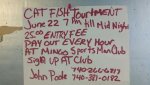 CAT FISH TOURNMENT
JUNE 22 7 PM till Mid Night
25.00 ENTRY FEE
PAY OUT EVERY HOUR
AT MINGO SportsMan Club
SIGN UP AT Club
740-266-6119
John Poole 740-381-0182